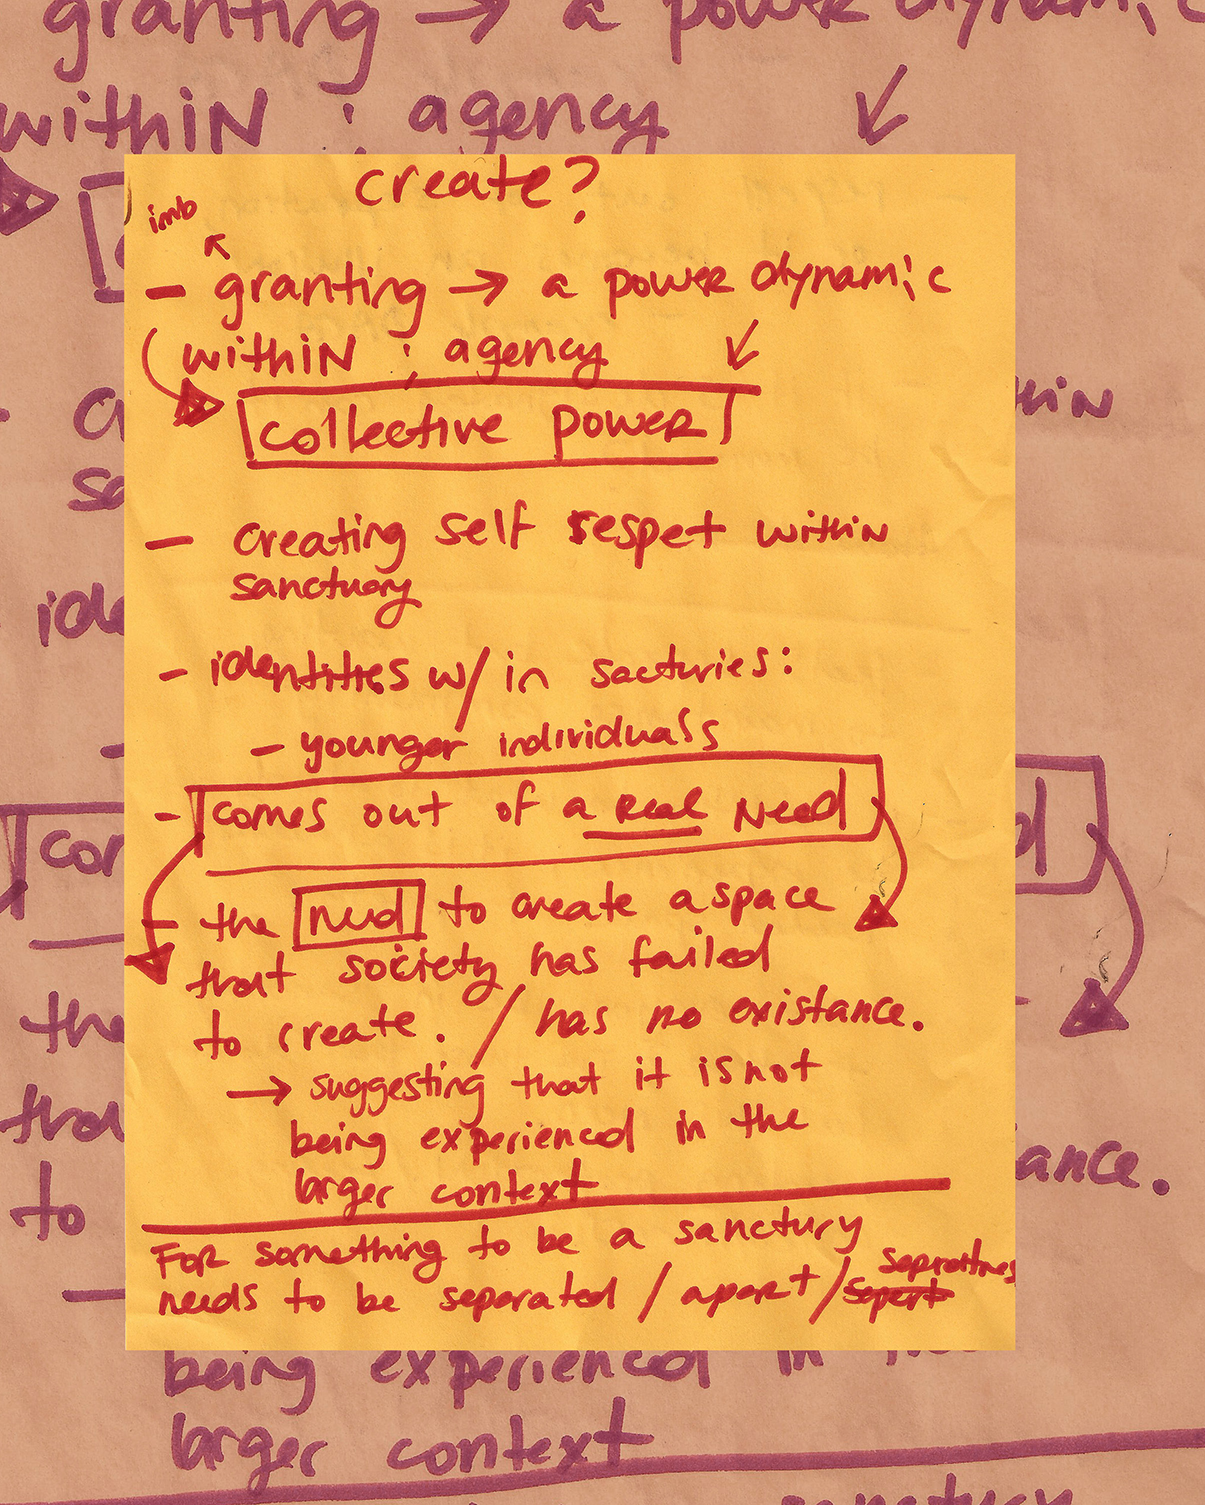 granting → a power dynamic
within : agency
create?
imb
- granting → a power dynamic
within : agency
collective power
- creating self respet within
sanctuary
- identities w/in sacturies:
- younger individuals
- comes out of a real need
- the need to create a space
that society has failed
to create. / has no existance.
→ suggesting that it is not
being experienced in the
larger context
For something to be a sanctury
needs to be separated / apart /
being experienced in the
larger context
sanctury